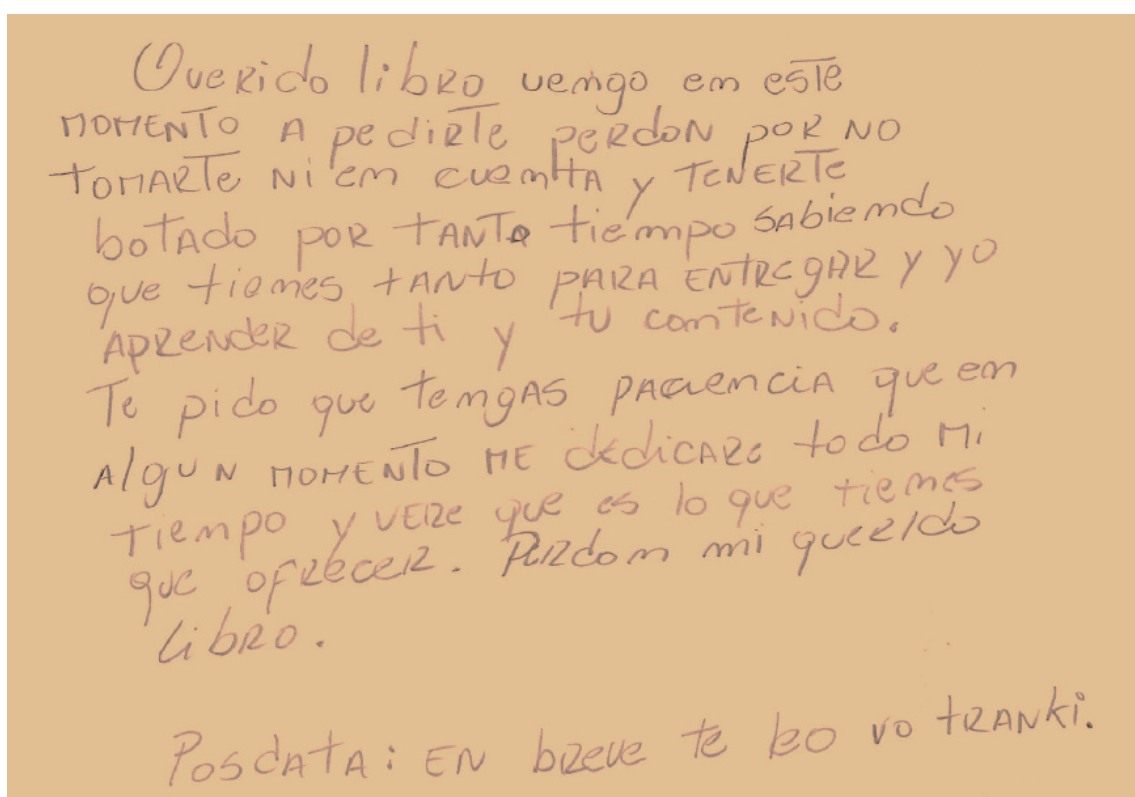 Querido libro vengo en este
momento a pedirte perdon por no
tomarte ni en cuenta y tenerte
botado por tanto tiempo sabiendo
que tienes tanto para entregar y yo
aprender de ti y tu contenido.
Te pido que tengas paciencia que en
algun momento me dedicare todo mi
tiempo y vere que es lo que tienes
que ofrecer. Perdon mi querido
libro.
Posdata: en breve te leo vo tranki.